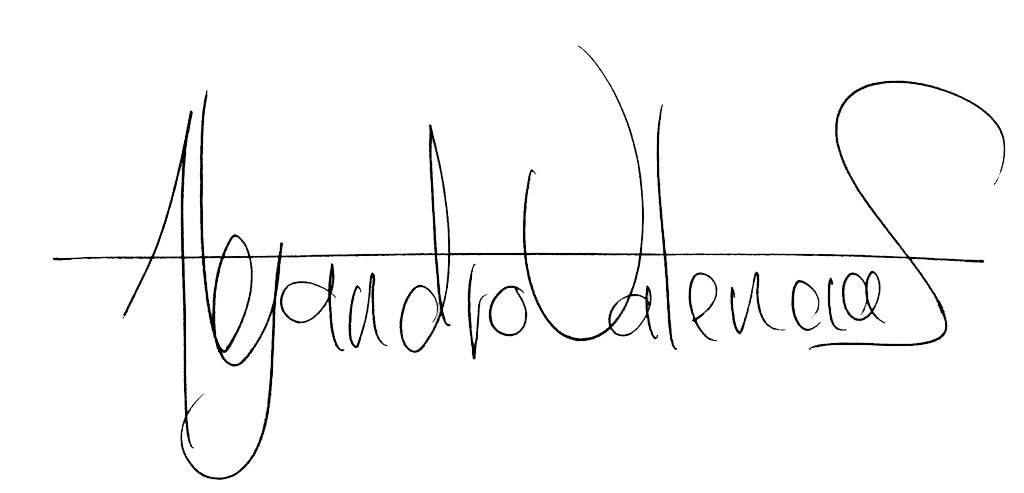 Alejandro Valencia S